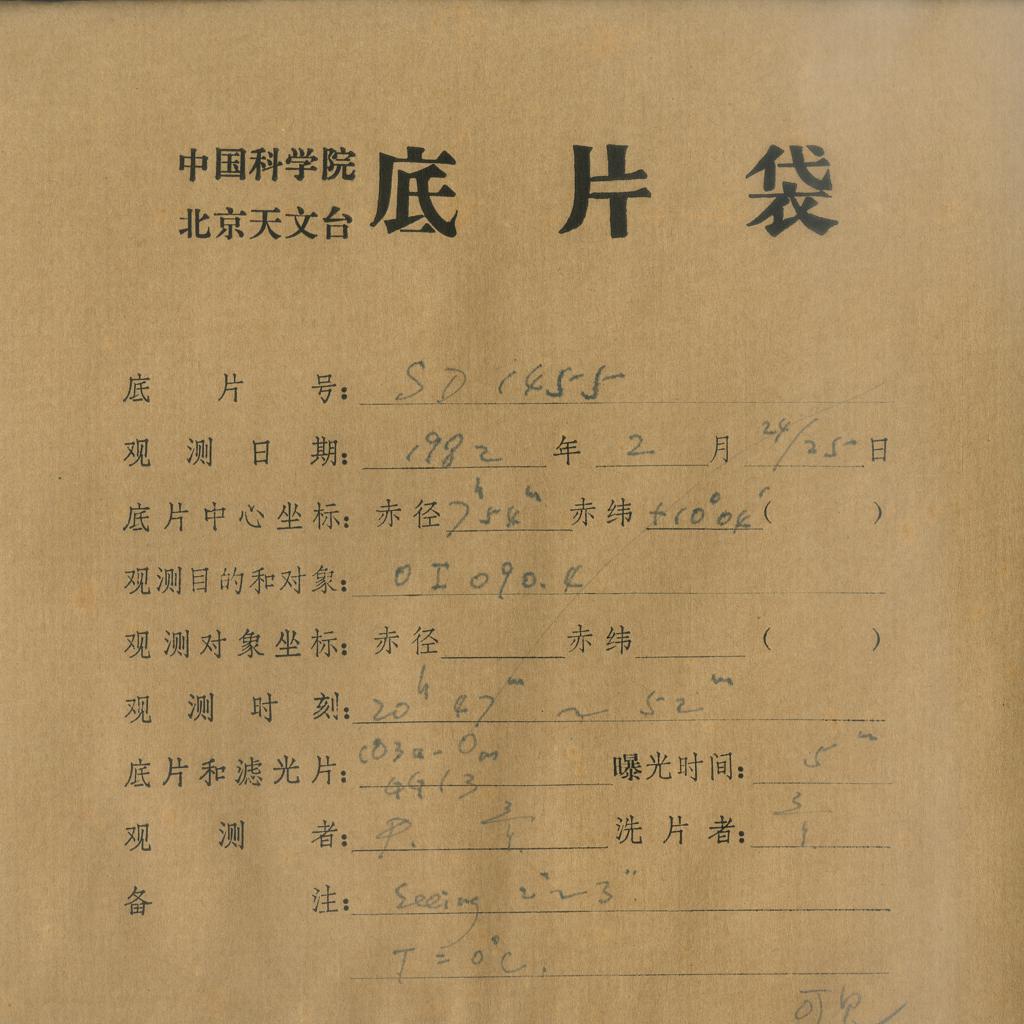 中国科学院
北京天文台
底片袋
底片号: SD 1455
观测日期: 1982 年 2 月 24/25 日
底片中心坐标: 赤径 7h 54m 赤纬 +10°04′ ( )
观测目的和对象: OI 090.4
观测对象坐标: 赤径 赤纬 ( )
观测时刻: 20h 47m ~ 52m
底片和滤光片: 103a-O 曝光时间: 5m
GG13
观测者: P. 洗片者:
备注: Seeing 2″~3″
T = 0°C.